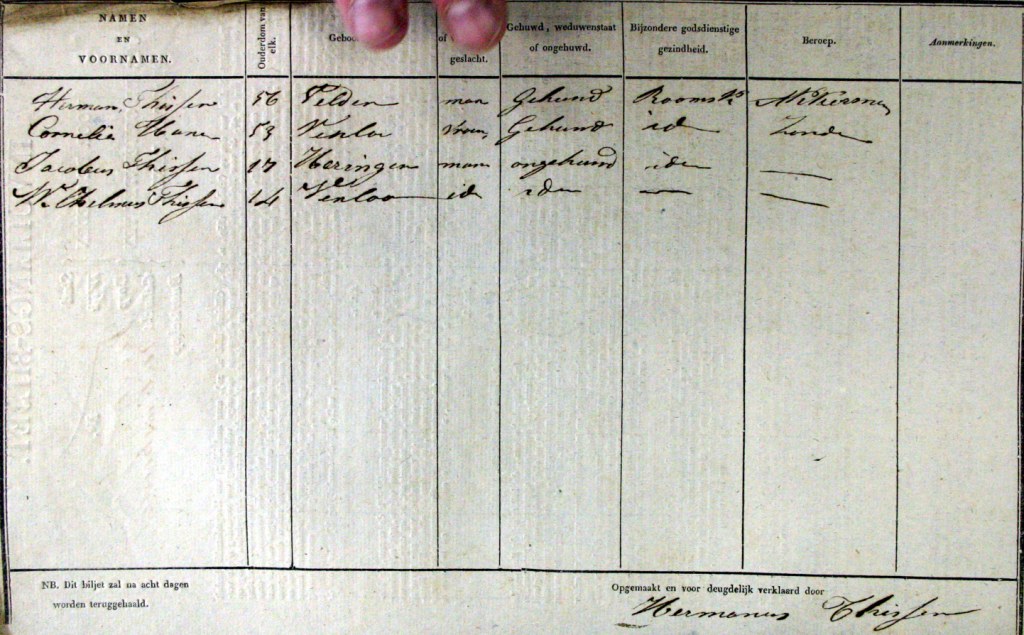 NAMEN EN VOORNAMEN. Ouderdom van elk. Geboo of geslacht. Gehuwd, weduwenstaat of ongehuwd. Bijzondere godsdienstige gezindheid. Beroep. Aanmerkingen.
Herman Thissen 56 Velden man Gehuwd Roomsch
Cornelia 53 Venloo vrouw Gehuwd id Zonder
Jacobus Thissen 17 man ongehuwd idem —
Wilhelmus Thissen 14 Venloo id idem — —
NB. Dit biljet zal na acht dagen
worden teruggehaald.
Opgemaakt en voor deugdelijk verklaard door
Hermanus Thissen